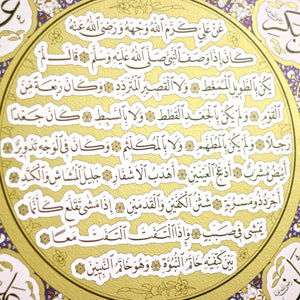 عَنْ عَلِيٍّ كَرَّمَ اللّٰهُ وَجْهَهُ وَرَضِيَ اللّٰهُ عَنْهُ
كَانَ إِذَا وَصَفَ النَّبِيَّ صَلَّى اللّٰهُ عَلَيْهِ وَسَلَّمَ قَالَ لَمْ
يَكُنْ بِالطَّوِيلِ الْمُمَغَّطِ وَلَا بِالْقَصِيرِ الْمُتَرَدِّدِ وَكَانَ رَبْعَةً مِنَ
الْقَوْمِ وَلَمْ يَكُنْ بِالْجَعْدِ الْقَطَطِ وَلَا بِالسَّبِطِ كَانَ جَعْدًا
رَجِلًا وَلَمْ يَكُنْ بِالْمُطَهَّمِ وَلَا بِالْمُكَلْثَمِ وَكَانَ فِي الْوَجْهِ تَدْوِيرٌ
أَبْيَضُ مُشْرَبٌ أَدْعَجُ الْعَيْنَيْنِ أَهْدَبُ الْأَشْفَارِ جَلِيلُ الْمُشَاشِ وَالْكَتَدِ
أَجْرَدُ ذُو مَسْرُبَةٍ شَثْنُ الْكَفَّيْنِ وَالْقَدَمَيْنِ إِذَا مَشَى تَقَلَّعَ كَأَنَّمَا
يَمْشِي فِي صَبَبٍ وَإِذَا الْتَفَتَ الْتَفَتَ مَعًا
بَيْنَ كَتِفَيْهِ خَاتَمُ النُّبُوَّةِ وَهُوَ خَاتَمُ النَّبِيِّينَ